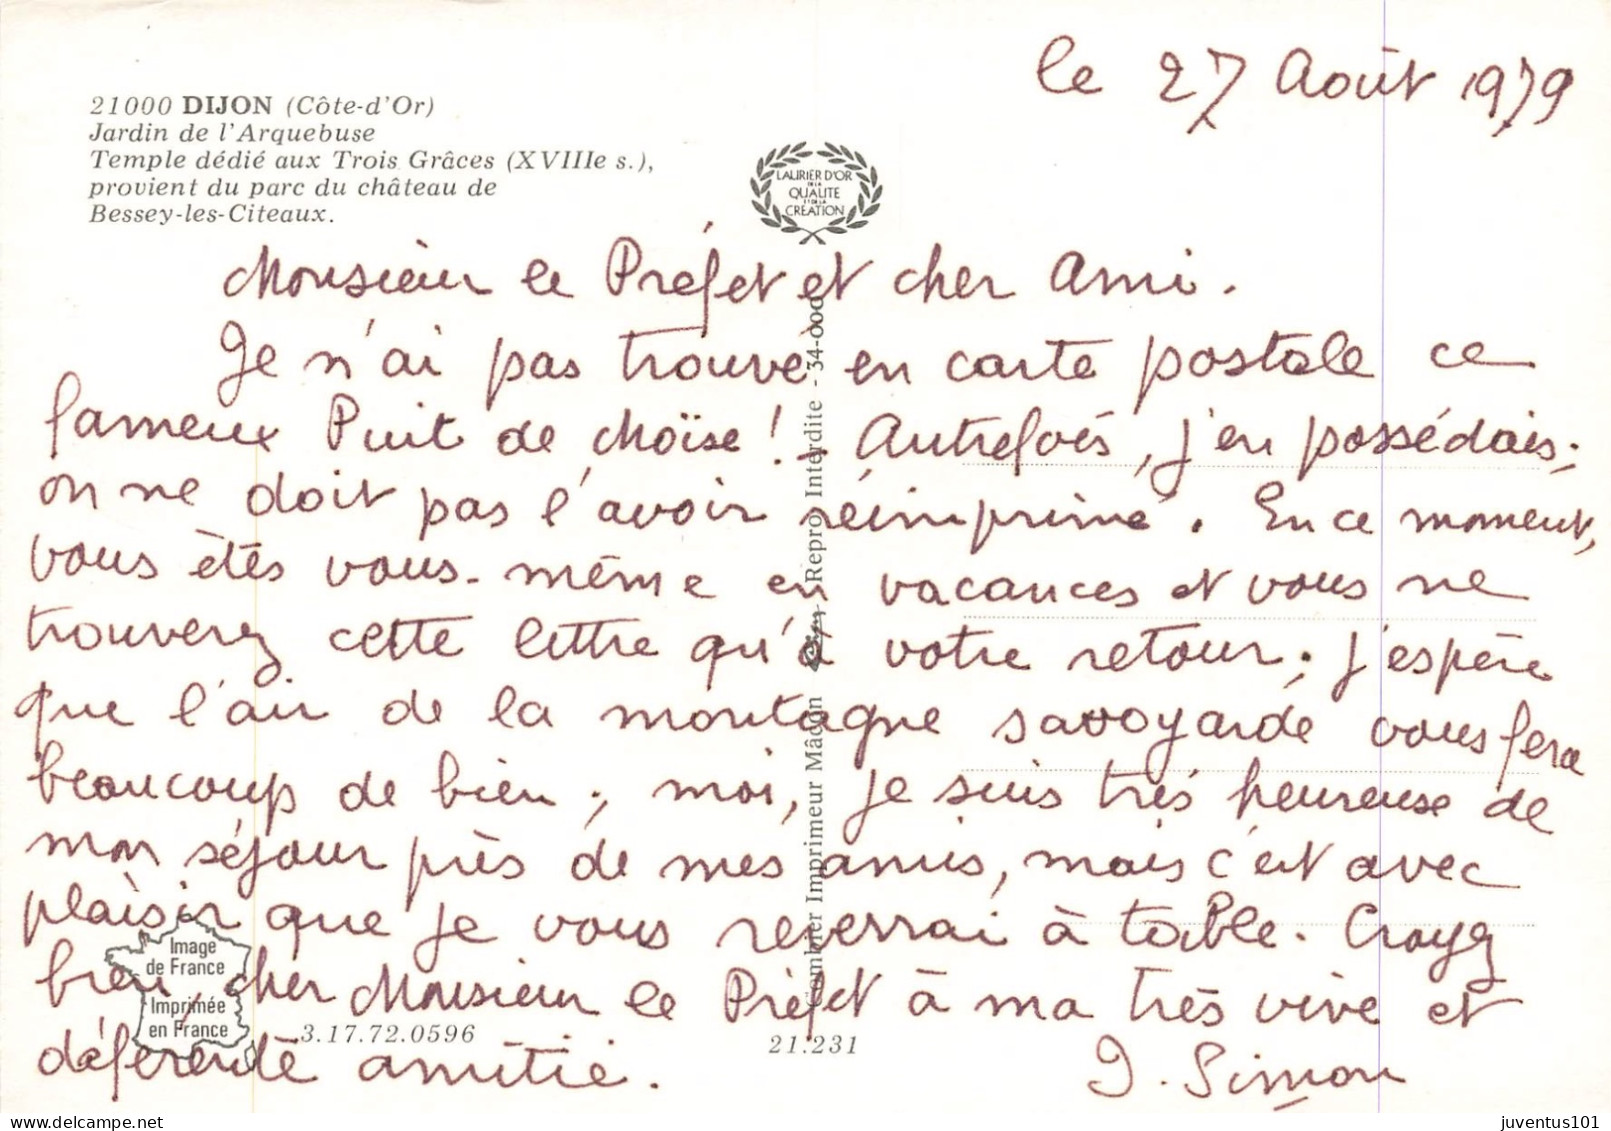 le 27 Août 1979
21000 DIJON (Côte-d'Or)
Jardin de l'Arquebuse
Temple dédié aux Trois Grâces (XVIIIe s.),
provient du parc du château de
Bessey-les-Citeaux.
LAURIER D'OR
DE LA
QUALITE
ET DE LA
CREATION
Monsieur le Préfet et cher Ami.
Je n'ai pas trouvé en carte postale ce
fameux Puit de Moïse ! - Autrefois, j'en possédais ;
on ne doit pas l'avoir réimprimé. En ce moment,
vous êtes vous-même en vacances et vous ne
trouverez cette lettre qu'à votre retour ; j'espère
que l'air de la montagne savoyarde vous fera
beaucoup de bien ; moi, je suis très heureuse de
mon séjour près de mes amis, mais c'est avec
plaisir que je vous reverrai à table. Croyez
bien, cher Monsieur le Préfet à ma très vive et
déférente amitié.
J. Simon
Combier Imprimeur Mâcon
Cim
- Repro. Interdite - 34-000
Image
de France
Imprimée
en France
3.17.72.0596
21.231
juventus101